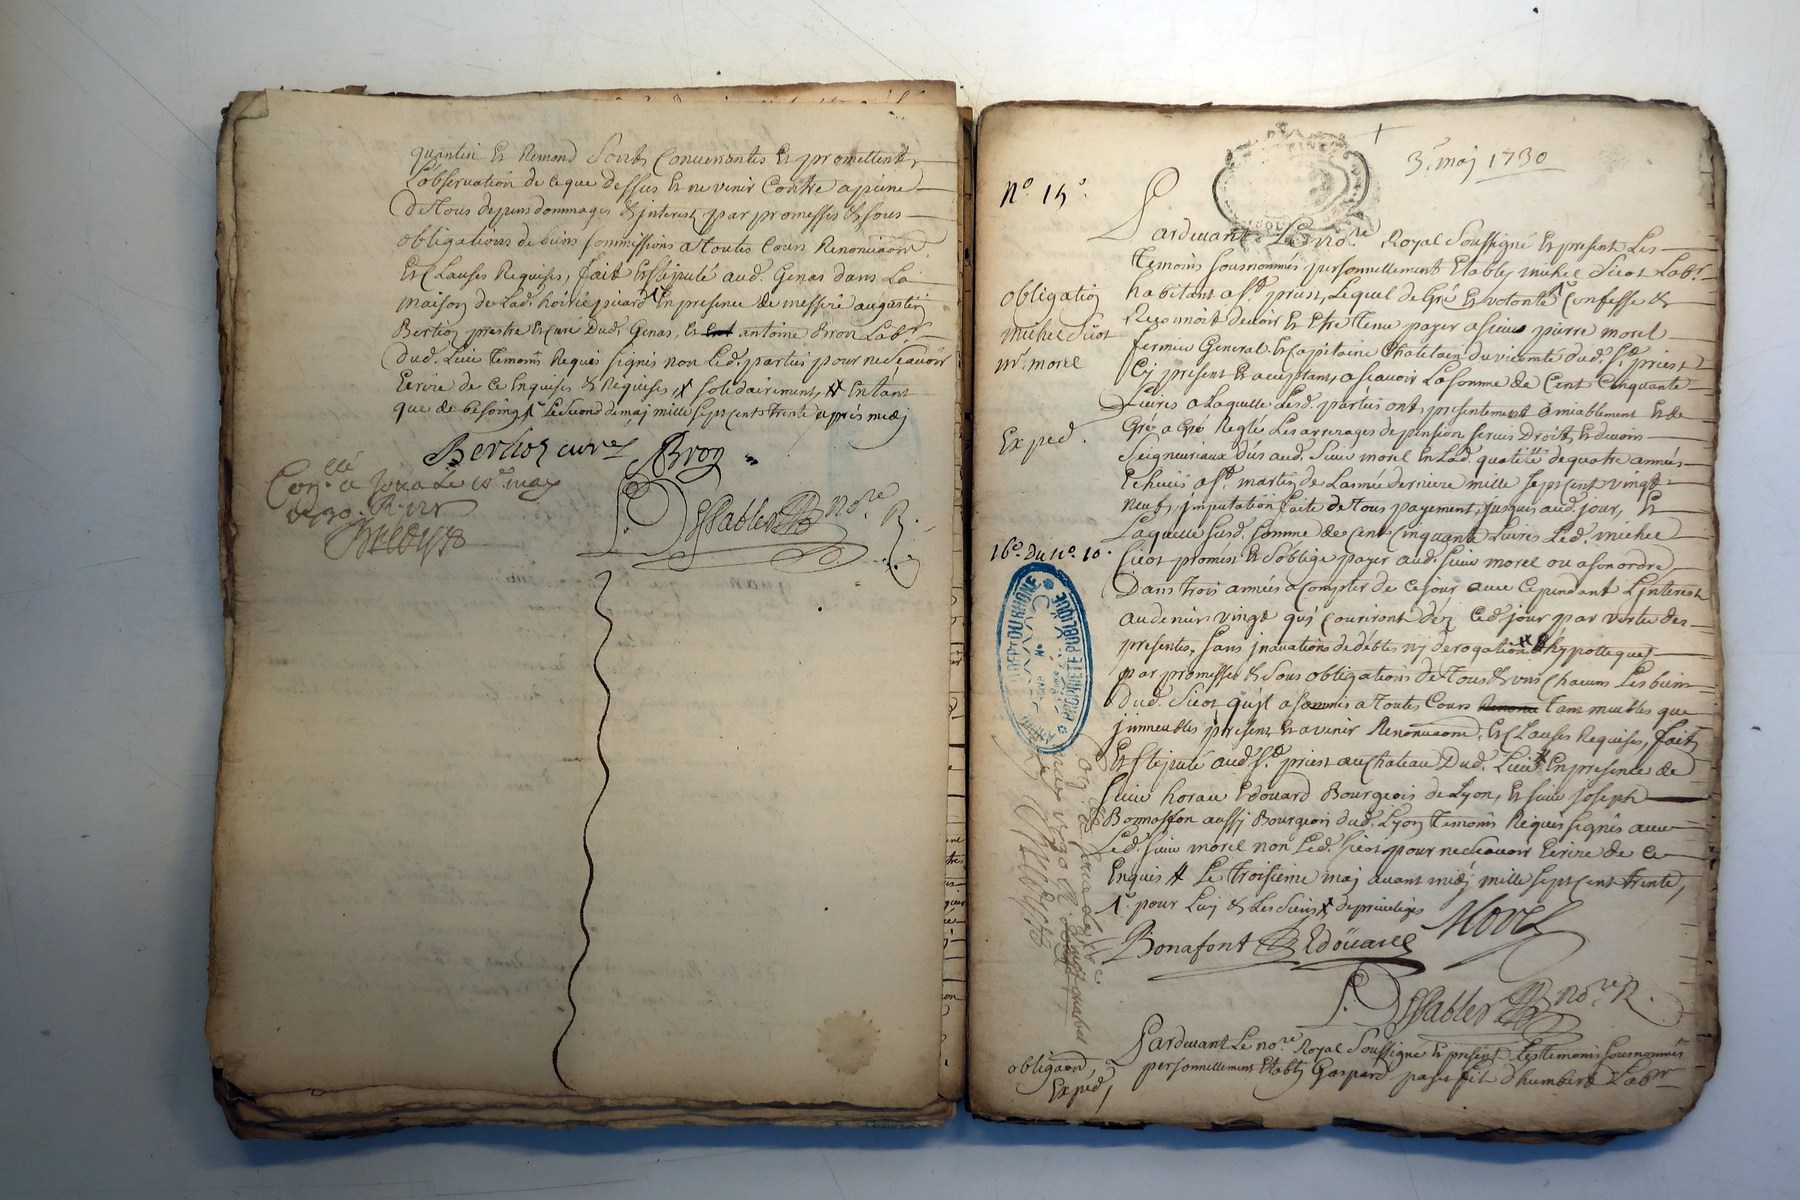 quantin et Remond Sont Convenantes et promettent
L'observation de ce que dessus et ne venir Contre a peine
de tous depens dommages & interest par promesses & sous
obligations de biens sommissions a toutes Cours Renonciaons
et Clauses Requises, fait et stipulé aud. Genas dans La
maison de Lad. hoirie picard en presence de messire augustin
Berlioz prestre et curé Dud. Genas, et antoine Bron Lab.r
dud. Lieu temoins Requis signés non Led. parties pour ne sçavoir
Ecrire de ce Enquises & Requises, x solidairement, # En tant
que de besoing Le second de maj mille sept cents trente apres midj
Berlioz curé Bron
Con.lé a Le may
1730. R.
no.re R.
3.e maj 1730
N.o 15.
Pardevant Le no.re Royal Soussigné et present Les
temoins sousnommés personnellement Etably michel Sicot Lab.r
habitant a S.t priest, Lequel de Gré et volonté Confesse &
Reconnoit devoir et Etre tenu payer a sieur pierre morel
fermier General et Capitaine Chatelain du vicomté dud. S.t priest
Cy present et acceptant, a sçavoir La somme de Cent Cinquante
Livres a Laquelle Lesd. parties ont presentement amiablement et de
Gré a Gré Reglé Les arrerages de pension servis Droits et devoirs
Seigneuriaux dûs aud. Sieur morel en Lad. qualité de quatre années
Echuës a S.t martin de L'année derniere mille sept cent vingt
neuf, imputation faite de tous payement, jusques aud. jour, et
Laquelle susd. somme de Cent Cinquante Livres Led. michel
Sicot promet et s'oblige payer aud. Sieur morel ou a son ordre
Dans trois années a Compter de ce jour avec Cependant L'interest
au denier vingt qui Couriront dez Ced. jour par vertu des
presentes, sans inovations de debtes nj derogation # hypotteques
par promesses & sous obligations de tous & uns Chacuns Les biens
Dud. Sicot qu'il a soumis a toutes Cours tant meubles que
jmmeubles presens et avenir Renonciaons et Clauses Requises, fait
et stipulé aud. S.t priest au Chateau Dud. Lieu # En presence de
Sieur Edouard Bourgeois de Lyon, et sieur joseph
Bonnaffon aussj Bourgeois dud. Lyon temoins Requis signés avec
Led. sieur morel non Led. Sicot pour ne sçavoir Ecrire de ce
Enquis # Le troisieme maj avant midj mille sept cent trente,
pour Luj & Les siens x de privileges
Bonafont Edoüard Morel
no.re R.
obligation
michel Sicot
m.r morel
Exped.
16.o Du n.o 10.
PROPRIETE PUBLIQUE
Pardevant Le no.re Royal Soussigné et present Les temoins sousnommés
personnellement Etably Gaspard fils d'humbert Lab.r
obligaon
Exped.